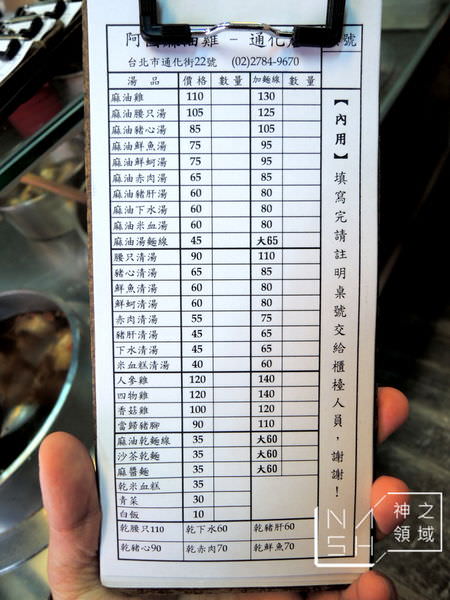 阿 麻油雞 - 通化 號
台北市通化街22號 (02)2784-9670
湯品 價格 數量 加麵線 數量
麻油雞 110 130
麻油腰只湯 105 125
麻油豬心湯 85 105
麻油鮮魚湯 75 95
麻油鮮蚵湯 75 95
麻油赤肉湯 65 85
麻油豬肝湯 60 80
麻油下水湯 60 80
麻油米血湯 60 80
麻油湯麵線 45 大65
腰只清湯 90 110
豬心清湯 65 85
鮮魚清湯 60 80
鮮蚵清湯 60 80
赤肉清湯 55 75
豬肝清湯 45 65
下水清湯 45 65
米血糕清湯 40 60
人參雞 120 140
四物雞 120 140
香菇雞 100 120
當歸豬腳 90 110
麻油乾麵線 35 大60
沙茶乾麵 35 大60
麻醬麵 35 大60
乾米血糕 35
青菜 30
白飯 10
乾腰只110 乾下水60 乾豬肝60
乾豬心90 乾赤肉70 乾鮮魚70
【內用】填寫完請註明桌號交給櫃檯人員，謝謝！
神之
領域